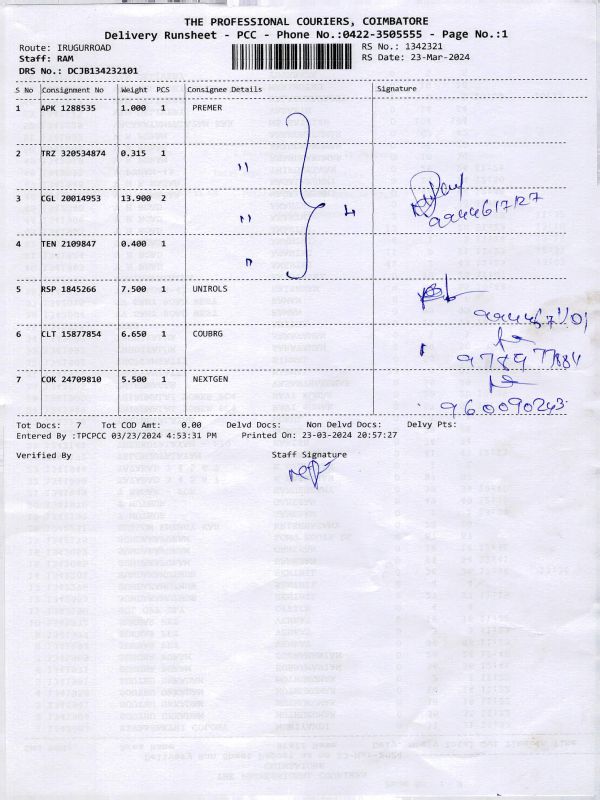 THE PROFESSIONAL COURIERS, COIMBATORE
Delivery Runsheet - PCC - Phone No.:0422-3505555 - Page No.:1
Route: IRUGURROAD RS No.: 1342321
Staff: RAM RS Date: 23-Mar-2024
DRS No.: DCJB134232101
S No Consignment No Weight PCS Consignee Details Signature
1 APK 1288535 1.000 1 PREMER
2 TRZ 320534874 0.315 1 "
3 CGL 20014953 13.900 2 " 4
4 TEN 2109847 0.400 1 "
5 RSP 1845266 7.500 1 UNIROLS
6 CLT 15877854 6.650 1 COUBRG
7 COK 24709810 5.500 1 NEXTGEN
Tot Docs: 7 Tot COD Amt: 0.00 Delvd Docs: Non Delvd Docs: Delvy Pts:
Entered By :TPCPCC 03/23/2024 4:53:31 PM Printed On: 23-03-2024 20:57:27
Verified By Staff Signature